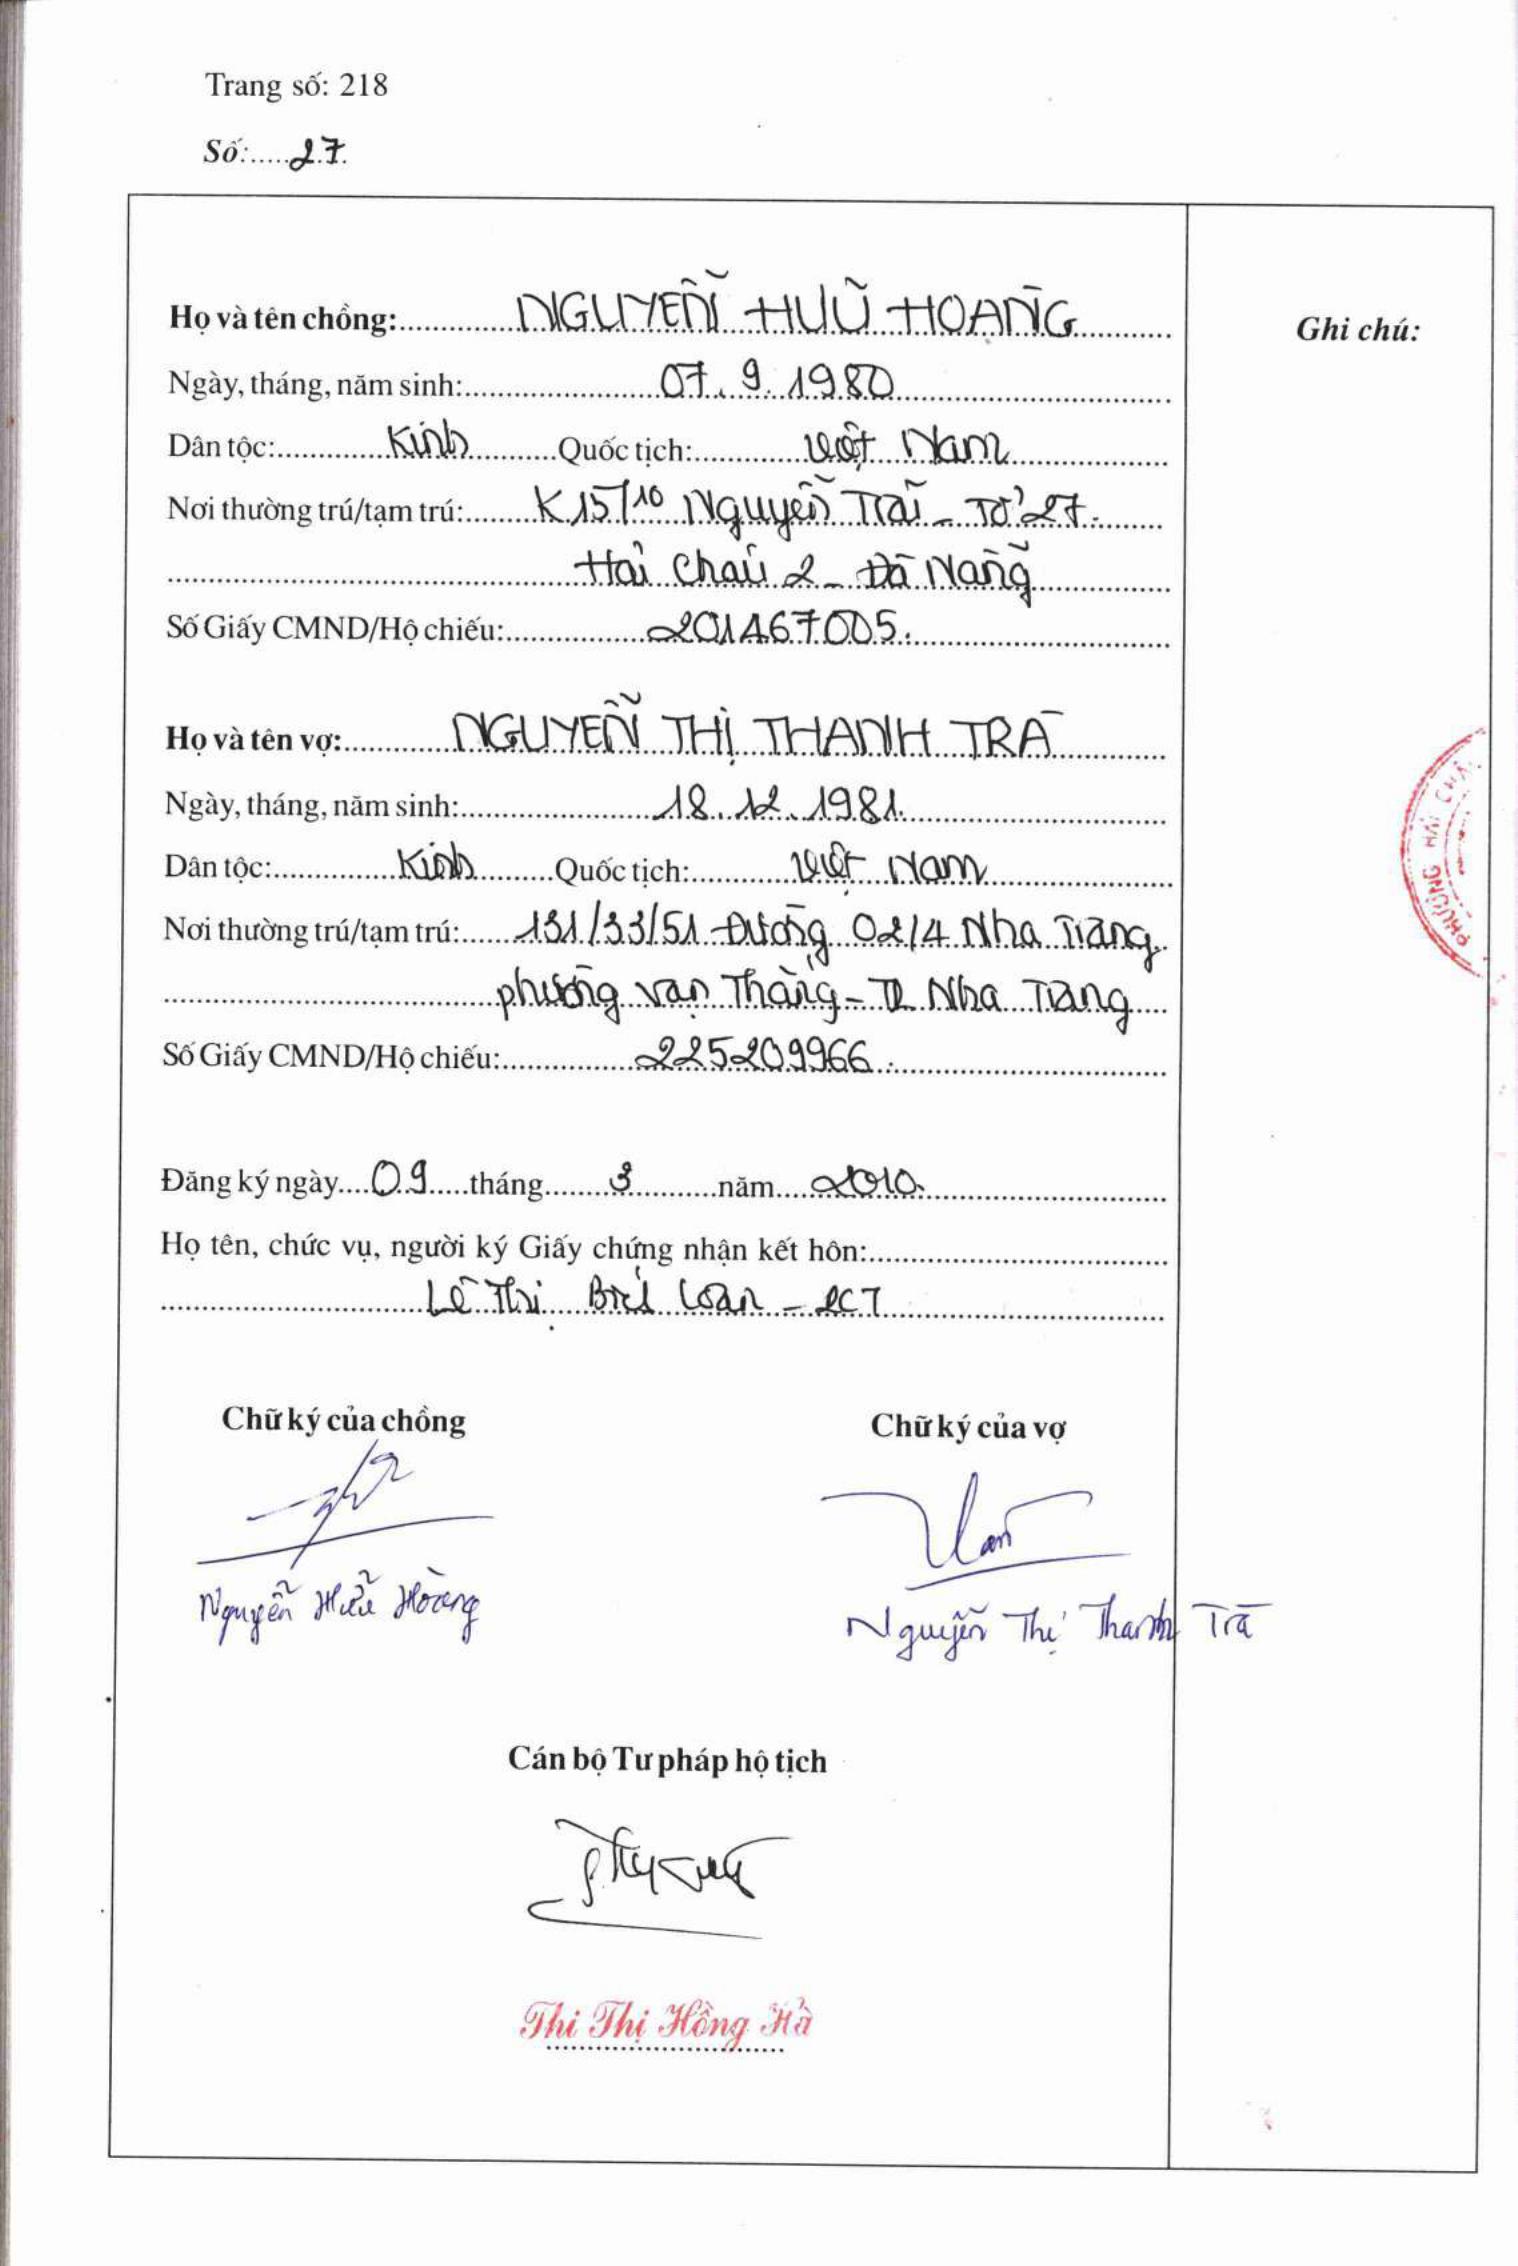 Trang số: 218
Số:.....27.
Họ và tên chồng: NGUYỄN HỮU HOÀNG
Ghi chú:
Ngày, tháng, năm sinh: 07. 9. 1980
Dân tộc: Kinh Quốc tịch: Việt Nam
Nơi thường trú/tạm trú: K15/10 Nguyễn Trãi - Tổ 27.
Hải Châu 2 - Đà Nẵng
Số Giấy CMND/Hộ chiếu: 201467005.
Họ và tên vợ: NGUYỄN THỊ THANH TRÀ
Ngày, tháng, năm sinh: 18. 12. 1981.
Dân tộc: Kinh Quốc tịch: Việt Nam
Nơi thường trú/tạm trú: 131/33/51 Đường 02/4 Nha Trang
phường Vạn Thắng - Nha Trang
Số Giấy CMND/Hộ chiếu: 225209966.
Đăng ký ngày 09 tháng 3 năm 2010.
Họ tên, chức vụ, người ký Giấy chứng nhận kết hôn:
Lê Thị Loan - PCT
Chữ ký của chồng
Chữ ký của vợ
Nguyễn Hữu Hoàng
Nguyễn Thị Thanh Trà
Cán bộ Tư pháp hộ tịch
Thi Thị Hồng Hà
PHƯỜNG HẢI CHÂU